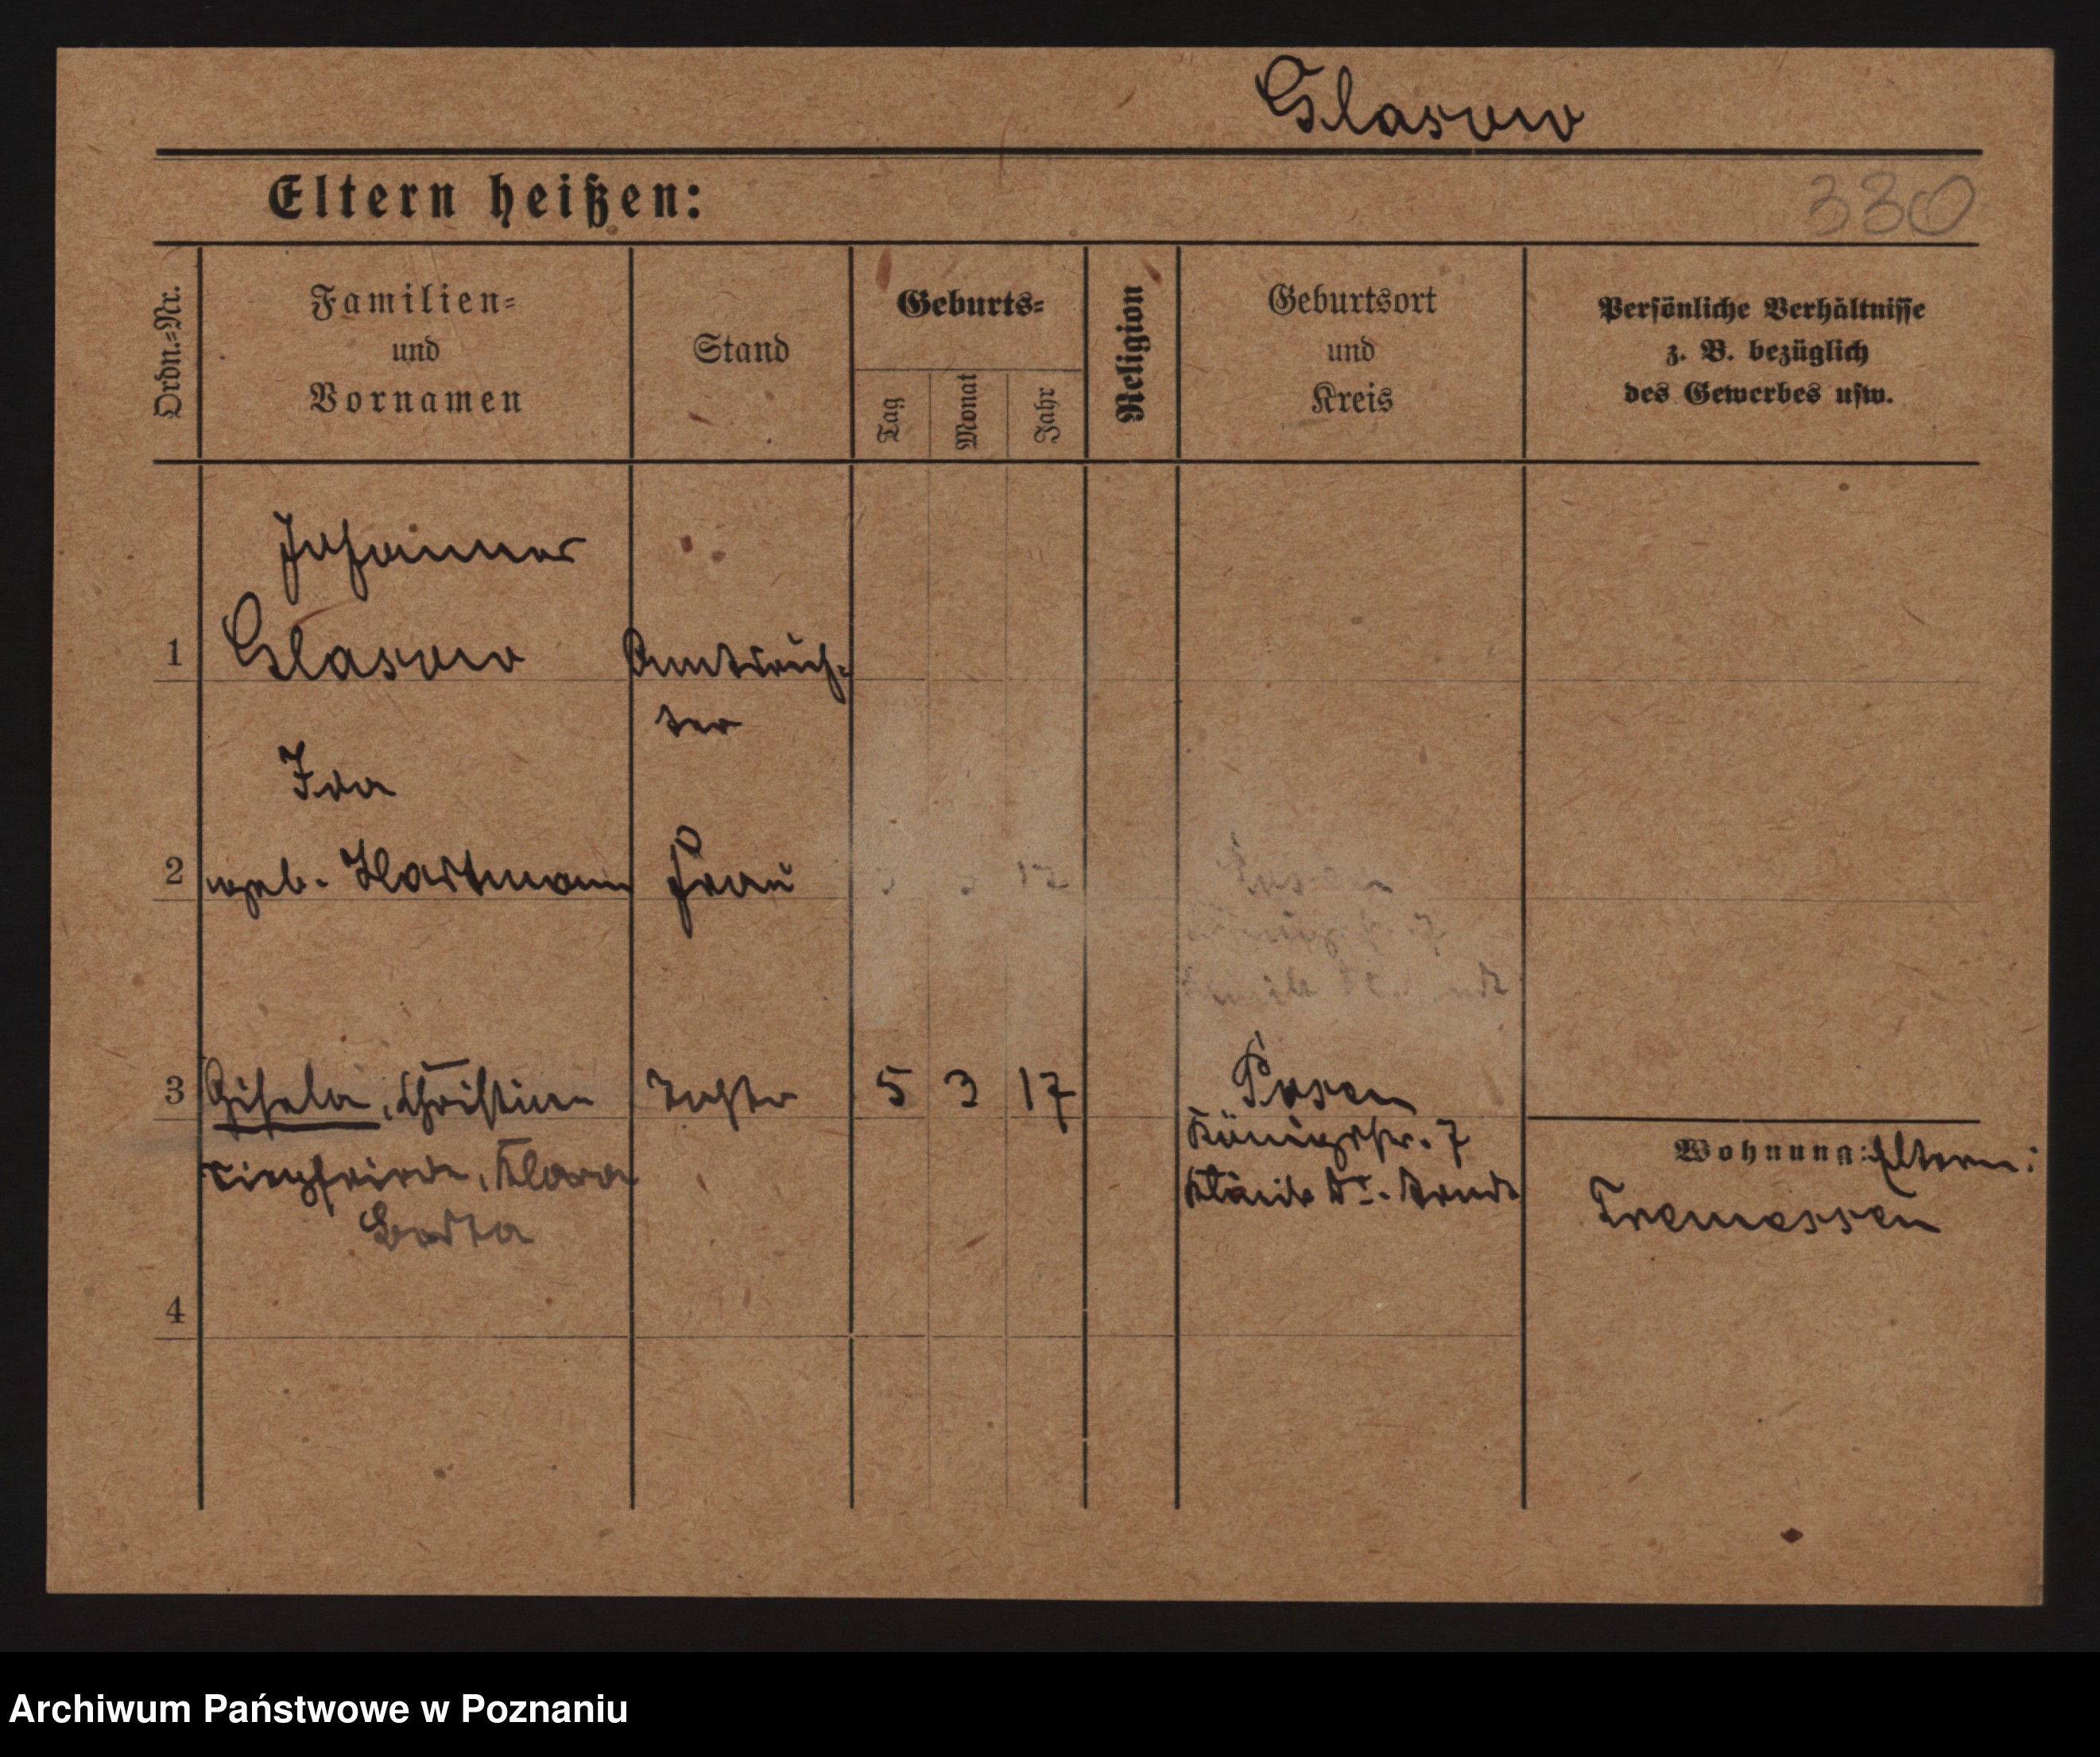 Glasow
Eltern heißen:
330
Ordn.=Nr.
Familien=
und
Vornamen
Stand
Geburts=
Tag
Monat
Jahr
Religion
Geburtsort
und
Kreis
Persönliche Verhältnisse
z. B. bezüglich
des Gewerbes usw.
Johannes
1 Glasow Amtsrich-
ter
Ida
2 geb. Hartmann Frau
3 Gisela, Christine Tochter 5 3 17 Posen
Königstr. 7
Siegfriede, Klara
Klinik Dr.
Berta
Wohnung: Eltern:
Tremessen
4
Archiwum Państwowe w Poznaniu